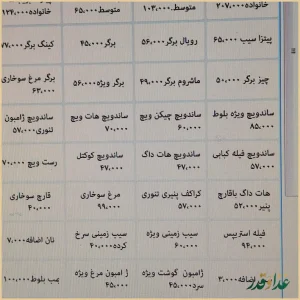 خانواده ۲۰۷.۰۰۰
متوسط ۱۰۳.۰۰۰
متوسط ۶۵.۰۰۰
خانواده ۱۳۴.۰۰۰
پیتزا سیب ۶۵.۰۰۰
رویال برگر ۵۶.۰۰۰
برگر ۴۵.۰۰۰
کینگ برگر ۷۷.۰۰۰
چیز برگر ۵۰.۰۰۰
ماشروم برگر ۴۹.۰۰۰
برگر ویژه ۵۶.۰۰۰
برگر مرغ سوخاری
۶۳.۰۰۰
ساندویچ ویژه بلوط
۸۵.۰۰۰
ساندویچ چیکن ویچ
۶۰.۰۰۰
ساندویچ هات ویچ
۷۰.۰۰۰
ساندویچ ژامبون
تنوری ۵۷.۰۰۰
ساندویچ فیله کبابی
۵۷.۰۰۰
ساندویچ هات داگ
۴۷.۰۰۰
ساندویچ کوکتل
۴۷.۰۰۰
رست ویچ ۷۰.۰۰۰
هات داگ باقارچ
پنیر ۵۲.۰۰۰
کراکف پنیری تنوری
۵۷.۰۰۰
مرغ سوخاری
۹۹.۰۰۰
قارچ سوخاری
۴۰.۰۰۰
فیله استریپس
۹۴.۰۰۰
سیب زمینی ویژه
۶۰.۰۰۰
سیب زمینی سرخ
کرده ۴۰.۰۰۰
نان اضافه ۷.۰۰۰
اضافه ۳.۰۰۰
ژامبون گوشت ویژه
سرد ۴۵.۰۰۰
ژامبون مرغ ویژه
۴۰.۰۰۰
بمب بلوط ۱۰۰.۰۰۰